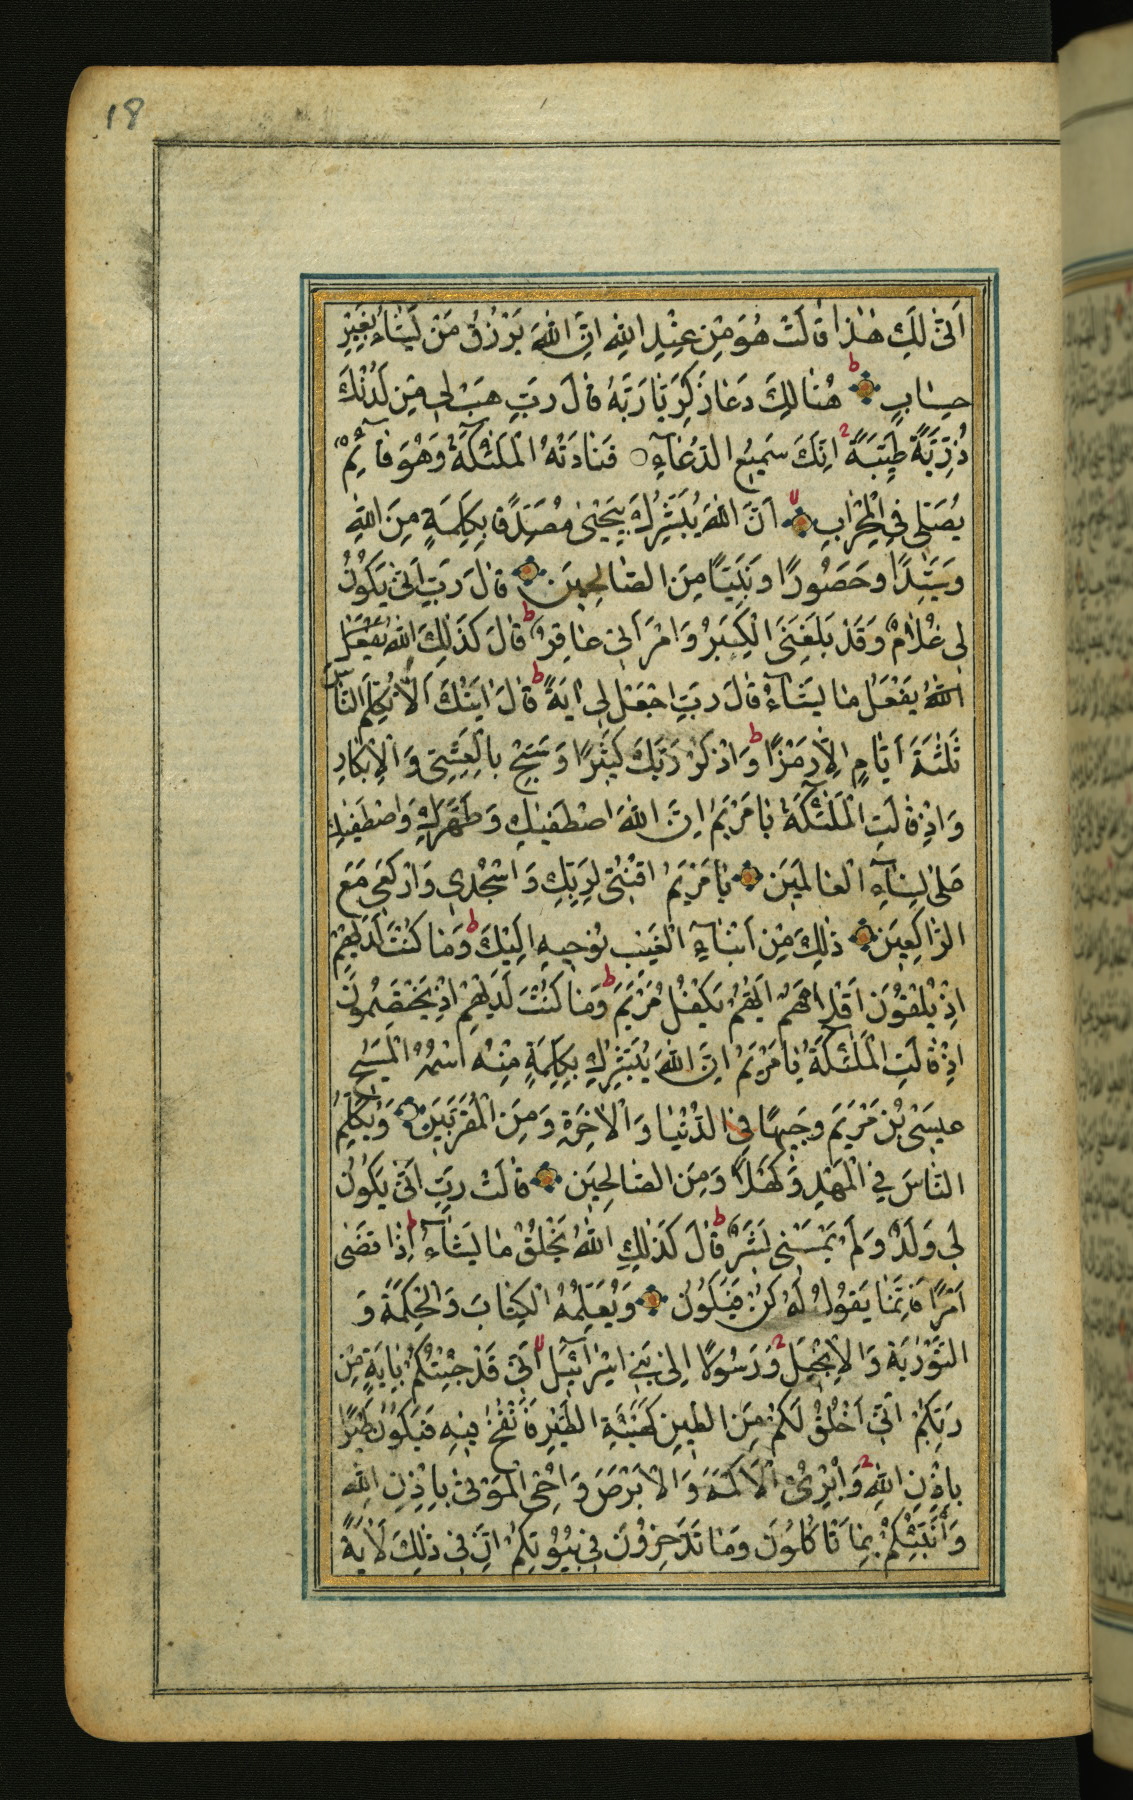 18
اَنّٰى لَكِ هٰذَا قَالَتْ هُوَ مِنْ عِنْدِ اللّٰهِ اِنَّ اللّٰهَ يَرْزُقُ مَنْ يَشَاءُ بِغَيْرِ
حِسَابٍ هُنَالِكَ دَعَا زَكَرِيَّا رَبَّهُ قَالَ رَبِّ هَبْ لِي مِنْ لَدُنْكَ
ذُرِّيَّةً طَيِّبَةً اِنَّكَ سَمِيعُ الدُّعَآءِ فَنَادَتْهُ الْمَلٰئِكَةُ وَهُوَ قَآئِمٌ
يُصَلِّي فِي الْمِحْرَابِ اَنَّ اللّٰهَ يُبَشِّرُكَ بِيَحْيٰى مُصَدِّقًا بِكَلِمَةٍ مِنَ اللّٰهِ
وَسَيِّدًا وَحَصُورًا وَنَبِيًّا مِنَ الصَّالِحِينَ قَالَ رَبِّ اَنّٰى يَكُونُ
لِي غُلَامٌ وَقَدْ بَلَغَنِيَ الْكِبَرُ وَامْرَاَتِي عَاقِرٌ قَالَ كَذٰلِكَ اللّٰهُ يَفْعَلُ
اللّٰهُ يَفْعَلُ مَا يَشَآءُ قَالَ رَبِّ اجْعَلْ لِي اٰيَةً قَالَ اٰيَتُكَ اَلَّا تُكَلِّمَ النَّاسَ
ثَلٰثَةَ اَيَّامٍ اِلَّا رَمْزًا وَاذْكُرْ رَبَّكَ كَثِيرًا وَسَبِّحْ بِالْعَشِيِّ وَالْاِبْكَارِ
وَاِذْ قَالَتِ الْمَلٰئِكَةُ يَا مَرْيَمُ اِنَّ اللّٰهَ اصْطَفٰيكِ وَطَهَّرَكِ وَاصْطَفٰيكِ
عَلٰى نِسَآءِ الْعَالَمِينَ يَا مَرْيَمُ اقْنُتِي لِرَبِّكِ وَاسْجُدِي وَارْكَعِي مَعَ
الرَّاكِعِينَ ذٰلِكَ مِنْ اَنْبَآءِ الْغَيْبِ نُوحِيهِ اِلَيْكَ وَمَا كُنْتَ لَدَيْهِمْ
اِذْ يُلْقُونَ اَقْلَامَهُمْ اَيُّهُمْ يَكْفُلُ مَرْيَمَ وَمَا كُنْتَ لَدَيْهِمْ اِذْ يَخْتَصِمُونَ
اِذْ قَالَتِ الْمَلٰئِكَةُ يَا مَرْيَمُ اِنَّ اللّٰهَ يُبَشِّرُكِ بِكَلِمَةٍ مِنْهُ اسْمُهُ الْمَسِيحُ
عِيسَى بْنُ مَرْيَمَ وَجِيهًا فِي الدُّنْيَا وَالْاٰخِرَةِ وَمِنَ الْمُقَرَّبِينَ وَيُكَلِّمُ
النَّاسَ فِي الْمَهْدِ وَكَهْلًا وَمِنَ الصَّالِحِينَ قَالَتْ رَبِّ اَنّٰى يَكُونُ
لِي وَلَدٌ وَلَمْ يَمْسَسْنِي بَشَرٌ قَالَ كَذٰلِكِ اللّٰهُ يَخْلُقُ مَا يَشَآءُ اِذَا قَضٰى
اَمْرًا فَاِنَّمَا يَقُولُ لَهُ كُنْ فَيَكُونُ وَيُعَلِّمُهُ الْكِتَابَ وَالْحِكْمَةَ وَ
التَّوْرٰيةَ وَالْاِنْجِيلَ وَرَسُولًا اِلٰى بَنِي اِسْرَآئِيلَ اَنِّي قَدْ جِئْتُكُمْ بِاٰيَةٍ مِنْ
رَبِّكُمْ اَنِّي اَخْلُقُ لَكُمْ مِنَ الطِّينِ كَهَيْئَةِ الطَّيْرِ فَاَنْفُخُ فِيهِ فَيَكُونُ طَيْرًا
بِاِذْنِ اللّٰهِ وَاُبْرِئُ الْاَكْمَهَ وَالْاَبْرَصَ وَاُحْيِ الْمَوْتٰى بِاِذْنِ اللّٰهِ
وَاُنَبِّئُكُمْ بِمَا تَاْكُلُونَ وَمَا تَدَّخِرُونَ فِي بُيُوتِكُمْ اِنَّ فِي ذٰلِكَ لَاٰيَةً